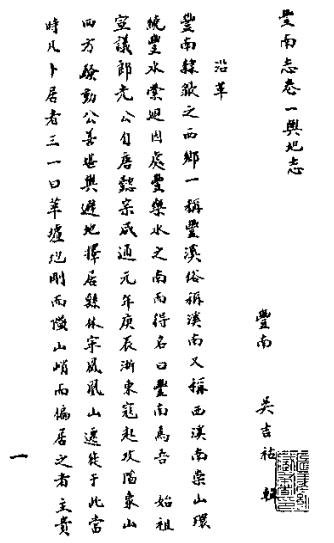 豐南志卷一輿地志
豐南 吳吉祜 輯
沿革
豐南隸歙之西鄉一稱豐溪俗稱溪南又稱西溪南棠山環
繞豐水縈迴因處豐樂水之南而得名曰豐南爲吾 始祖
宣議郎光公自唐懿宗咸通元年庚辰浙東寇起攻陷象山
四方騷動公善堪輿避地擇居縣休寧鳳凰山遷徙于此當
時凡卜居者三一曰莘墟地剛而隘山峭而偏居之者主貴
一